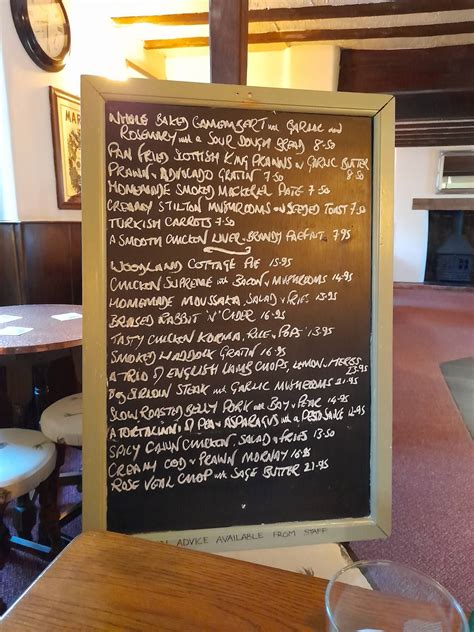 WHOLE BAKED CAMEMBERT with GARLIC and
ROSEMARY with a SOUR DOUGH BREAD 8.50
PAN FRIED SCOTTISH KING PRAWNS in GARLIC BUTTER
8.50
PRAWN & AVOCADO GRATIN 7.50
HOMEMADE SMOKED MACKEREL PATE 7.50
CREAMY STILTON MUSHROOMS on SEEDED TOAST 7.50
TURKISH CARROTS 7.50
A SMOOTH CHICKEN LIVER & BRANDY PARFAIT 7.95
WOODLAND COTTAGE PIE 15.95
CHICKEN SUPREME with BACON & MUSHROOMS 14.95
HOMEMADE MOUSSAKA, SALAD & FRIES 13.95
BRAISED RABBIT 'N' CIDER 16.95
TASTY CHICKEN KORMA, RICE & POPS 13.95
SMOKED HADDOCK GRATIN 16.95
A TRIO OF ENGLISH LAMB CHOPS, LEMON & HERBS
23.95
SIRLOIN STEAK with GARLIC MUSHROOMS 21.95
SLOW ROASTED BELLY PORK with BAY & PEAR 14.95
A TORTALIAN OF PEA & ASPARAGUS with a PESTO SAUCE
SPICY CAJUN CHICKEN, SALAD & FRIES 13.50
CREAMY COD & PRAWN MORNAY 16.95
ROSE VEAL CHOP with SAGE BUTTER 21.95
ADVICE AVAILABLE FROM STAFF